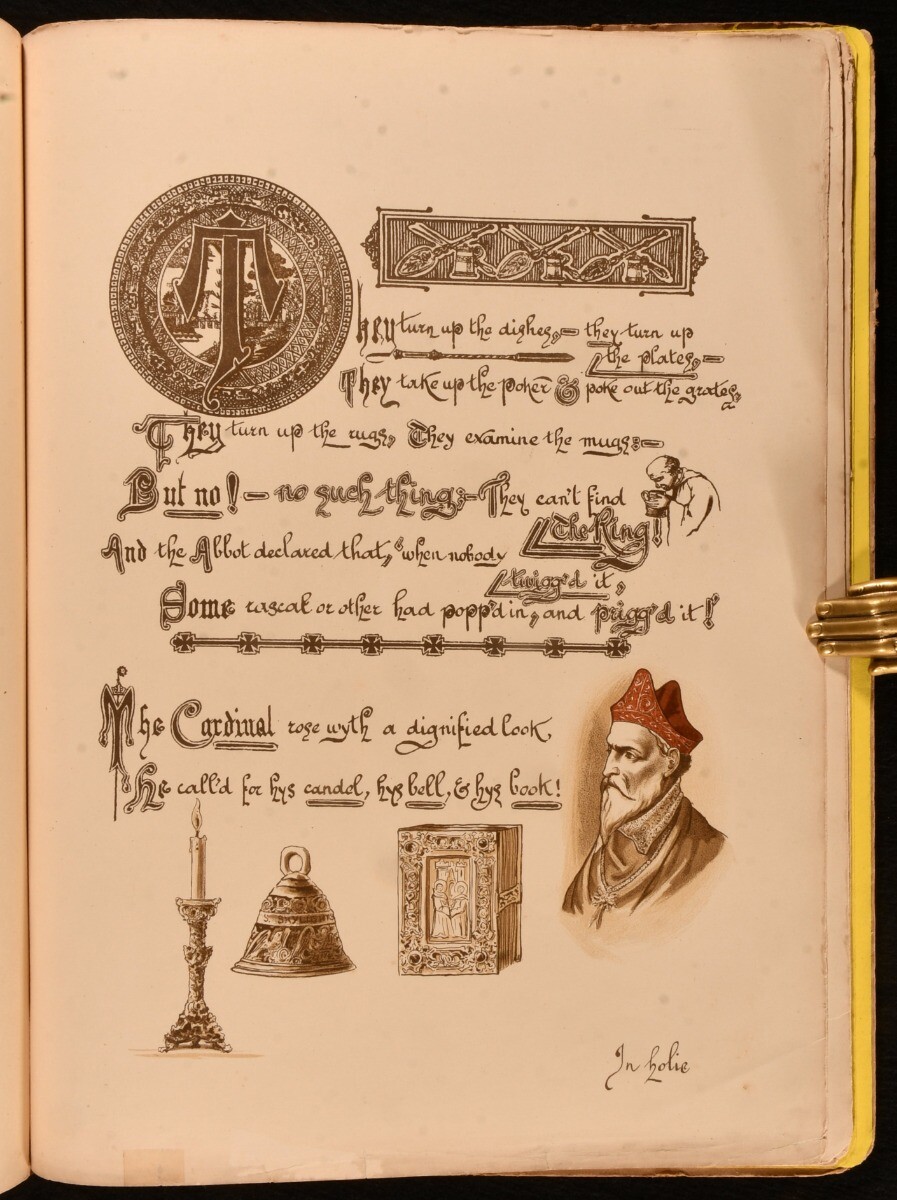 They turn up the dishes,— they turn up
the plates,—
They take up the poker & poke out the grates,
They turn up the rugs, They examine the mugs:—
But no!— no such thing;— They can't find
The Ring!
And the Abbot declared that, "when nobody
twigg'd it,
Some rascal or other had popp'd in, and prigg'd it!"
The Cardinal rose wyth a dignified look,
He call'd for hys candel, hys bell, & hys book!
In holie